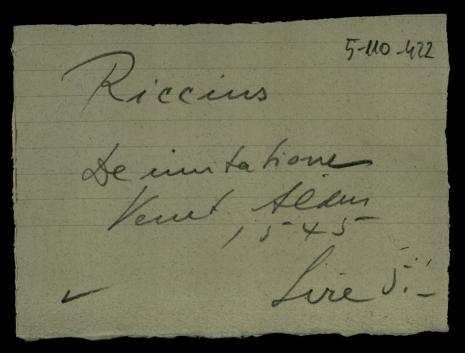 5-110-422
Riccius
De imitatione
Venet. Aldus
1545
Lire 5.–